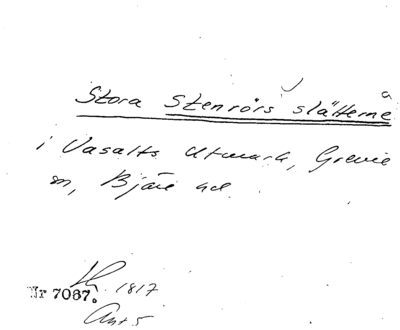 Stora Stenrörs slätterna
i Vasalts Utmark, Grevie
sn, Bjäre hd.
1817
Nr 7087.
Akt 5